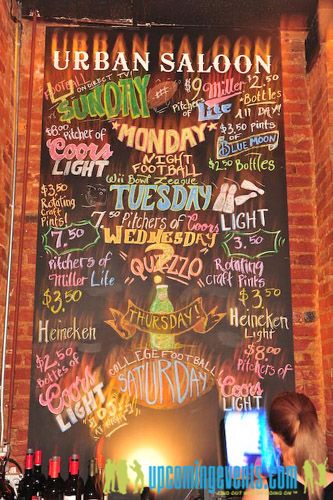 URBAN SALOON
FOOTBALL
ON DIRECT TV!
SUNDAY
$9 Miller
Pitchers of Lite
$2.50
Bottles
All DAY!
$8.00
Pitcher of
Coors
LIGHT
MONDAY
NIGHT
FOOTBALL
$3.50 pints
of
BLUE MOON
$2.50 Bottles
$3.50
Rotating
Craft
Pints!
Wii Bowl League
TUESDAY
7.50 Pitchers of Coors
LIGHT
7.50
Pitchers of
Miller Lite
WEDNESDAY
QUIZZO
3.50
Rotating
Craft Pints
$3.50
Heineken
THURSDAY!
$3.50
Heineken
Light
$2.50
Bottles of
Coors
LIGHT
COLLEGE FOOTBALL
SATURDAY
$8.00
Pitchers of
Coors
LIGHT
upcomingevents.com
FIND OUT WHAT'S GOING ON